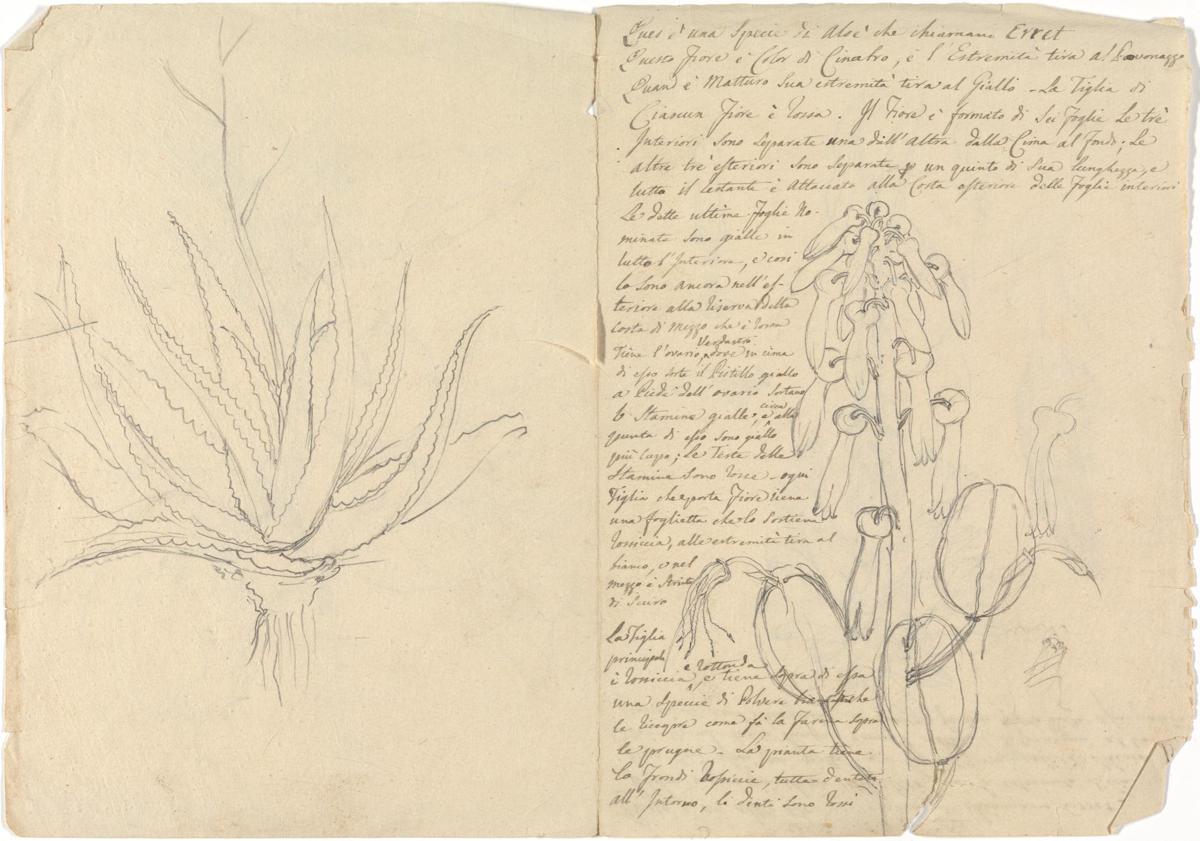 Quest' è una Specie di Aloè che chiamani Erret
Questo fiore è Color di Cinabro, e l'Estremità tira al Pavonazzo
Quand' è Matturo Sua estremità tira al Giallo - La Tiglia di
Ciascun Fiore è rossa. Il Fiore è formato di Sei foglie Le trè
Interiori sono Separate una dall'altra dalla Cima al fondi; Le
altre trè esteriori sono Separate un quinto di Sua lunghezza, e
tutto il restante è Attaccato alla Costa esteriore delle foglie interiori
Le dette ultime foglie No-
minate sono gialle in
tutto l'Interiore, e così
lo Sono ancora nell'es-
teriore alla riserva della
Costa di mezzo che è rossa
Verdastro
Tiene l'ovario, dove in cima
di esso sorte il Pistillo giallo
a Piedi dell'ovario Sortano
circa
lo Stamina gialle, e alla
punta di esso sono giallo
più Cuppo; Le Teste delle
Stamina Sono rosse. ogni
Tiglia che porta Fiore tiene
una foglietta che lo Sostiene
rossiccia, alle estremità tira al
bianco, e nel
mezzo è
di Scuro
La Tiglia
principale
e rottonda
è rossiccia, e tiene sopra di essa
una Specie di Polvere che
le ricopre come fà la Farina Sopra
le prugne - La pianta tiene
Le Frondi rossiccie, tutte dentate
all'Intorno, li denti Sono rossi